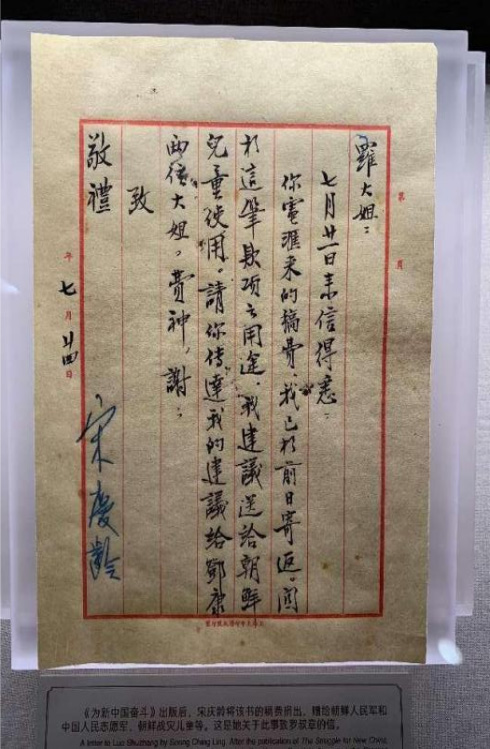 第 頁
羅大姐：
七月廿一日来信得悉：
你電滙来的稿費，我已於前日寄返。関
於這筆款項之用途，我建議送給朝鮮
兒童使用。請你傳達我的建議給鄧康
両位大姐。費神，謝：
致
敬禮
年七月廿四日
宋慶齡
《为新中国奋斗》出版后，宋庆龄将该书的稿费捐出，赠给朝鲜人民军和
中国人民志愿军、朝鲜战灾儿童等。这是她关于此事致罗叔章的信。
A letter to Luo Shuzhang by Soong Ching Ling. After the publication of The Struggle for New China,